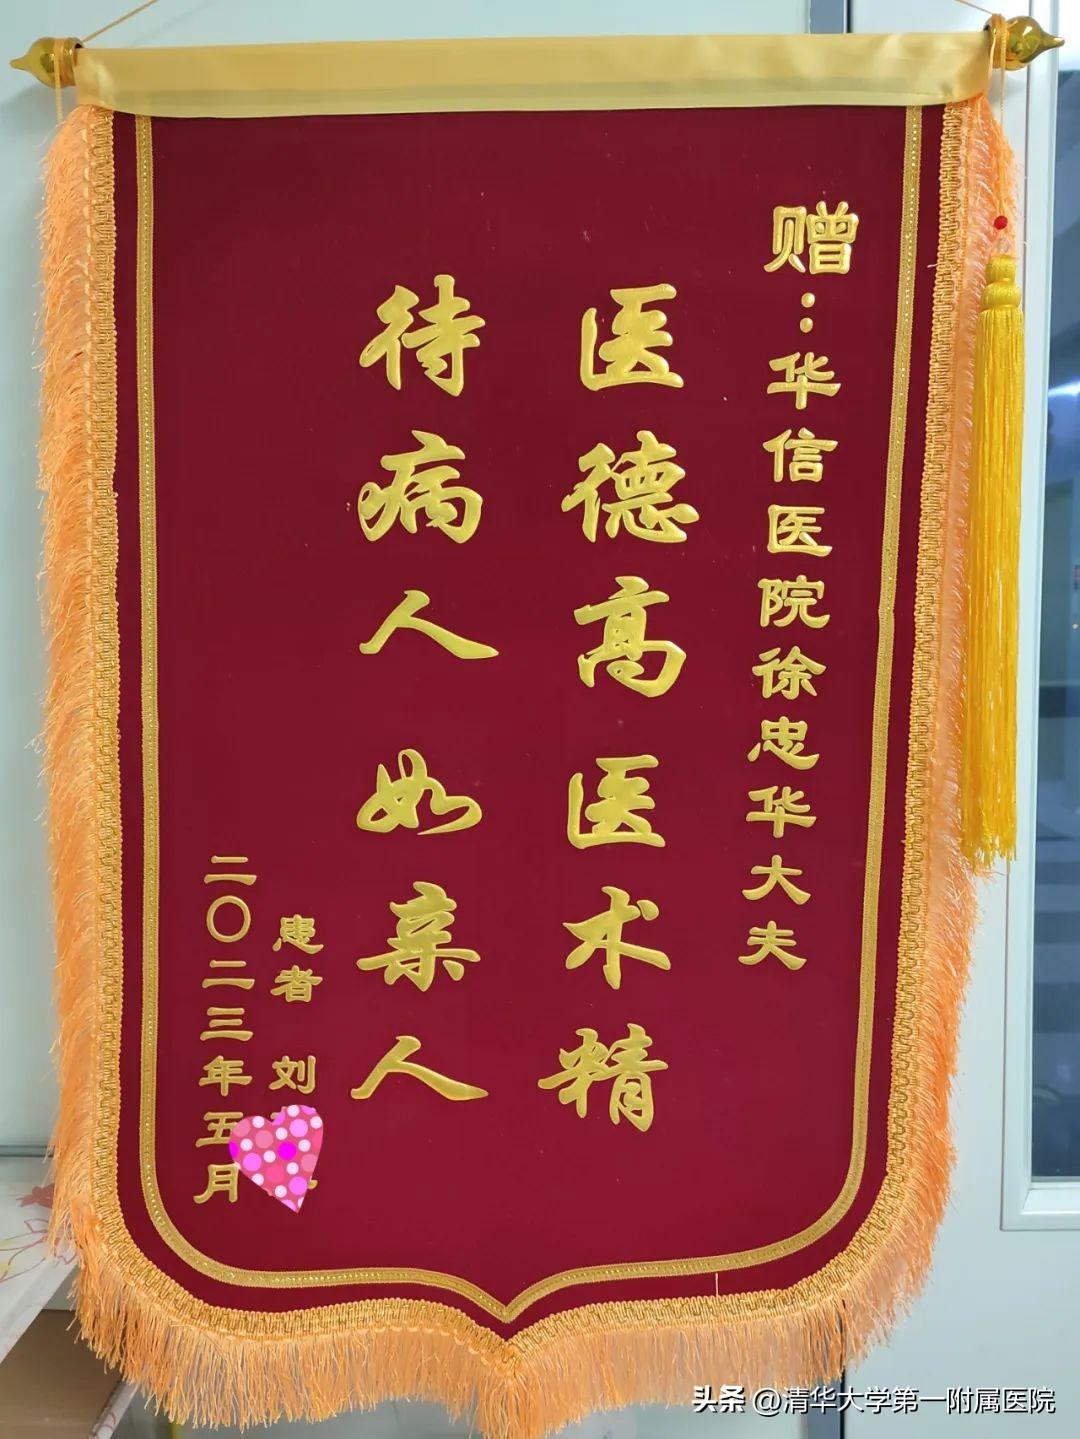 赠:华信医院徐忠华大夫
医德高医术精
待病人如亲人
患者 刘
二〇二三年五月
头条 @清华大学第一附属医院